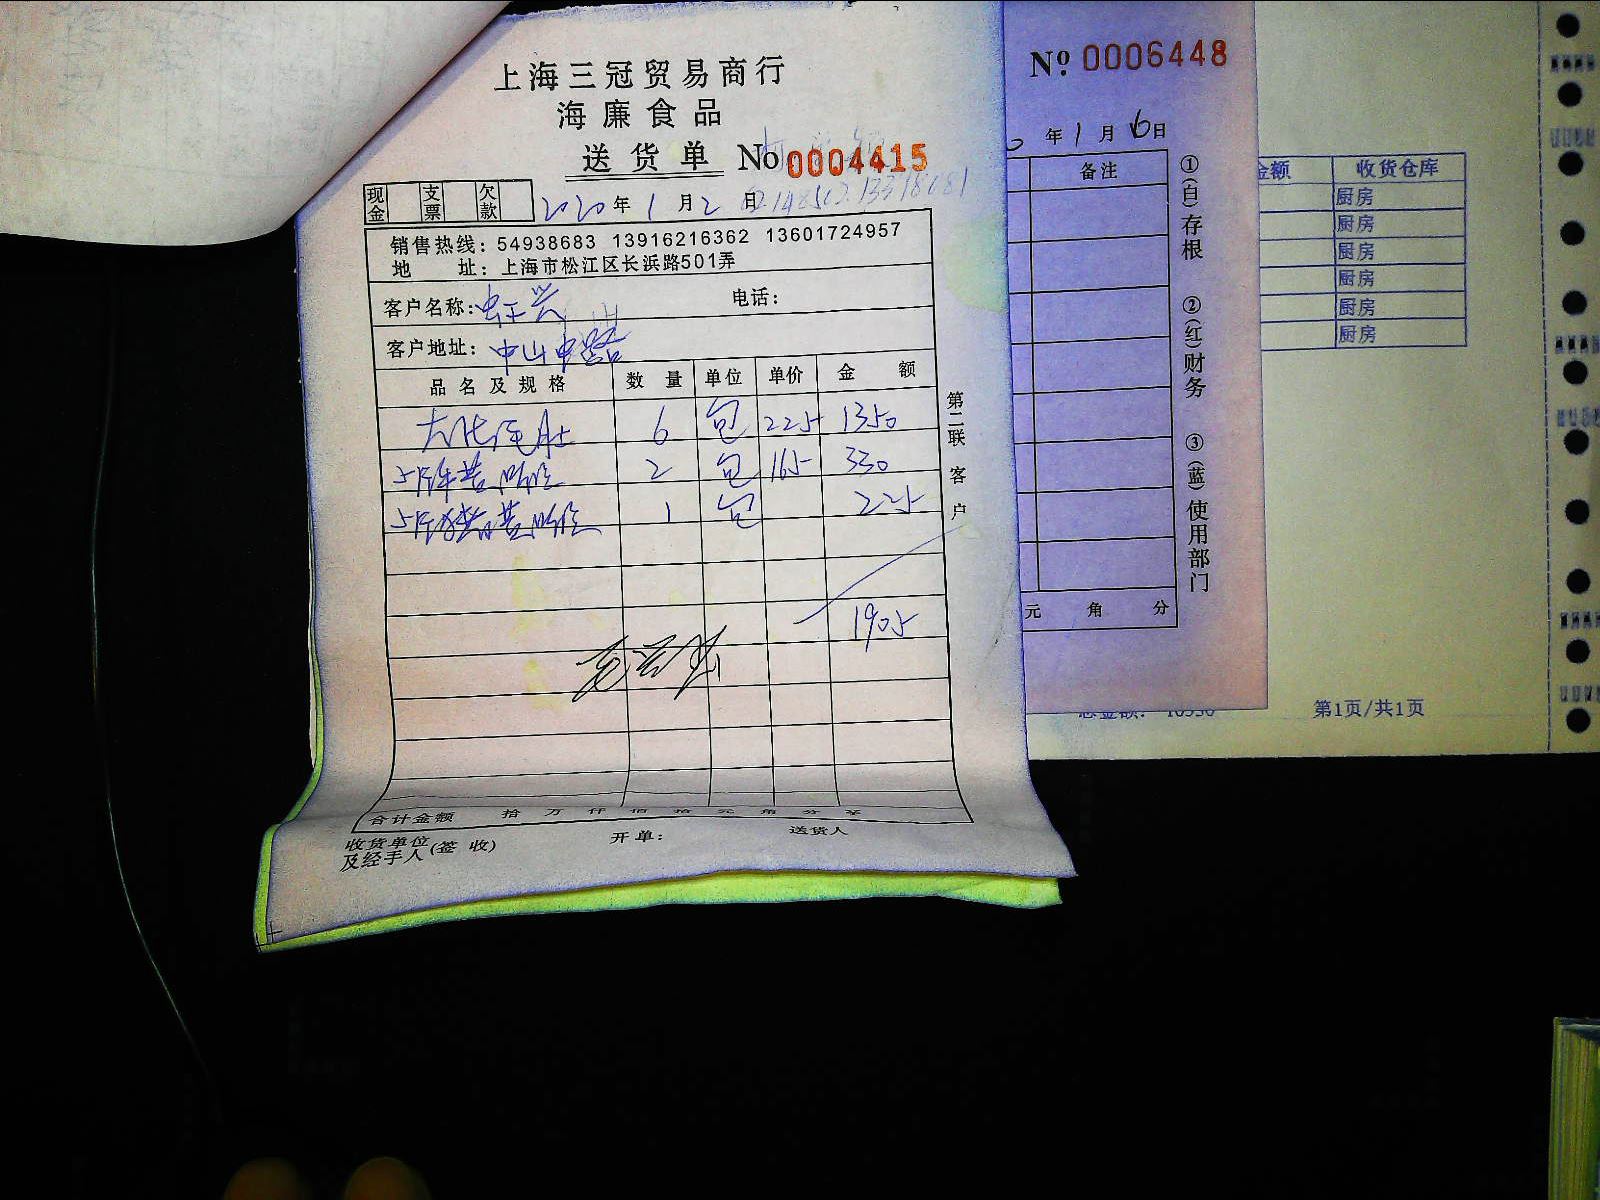 上海三冠贸易商行
海廉食品
送货单 No 0004415
现金 支票 欠款 2020年1月2日
销售热线：54938683 13916216362 13601724957
地 址：上海市松江区长浜路501弄
客户名称： 电话：
客户地址：中山中路
品名及规格 数量 单位 单价 金额
6 包 225 1350
2 包 165 330
1 包 225
1905
合计金额 拾 万 仟 佰 拾 元 角 分 ¥
收货单位及经手人(签收) 开单： 送货人
第二联 客户
No 0006448
年1月6日
备注
元 角 分
①(白)存根 ②(红)财务 ③(蓝)使用部门
金额 收货仓库
厨房
厨房
厨房
厨房
厨房
厨房
第1页/共1页